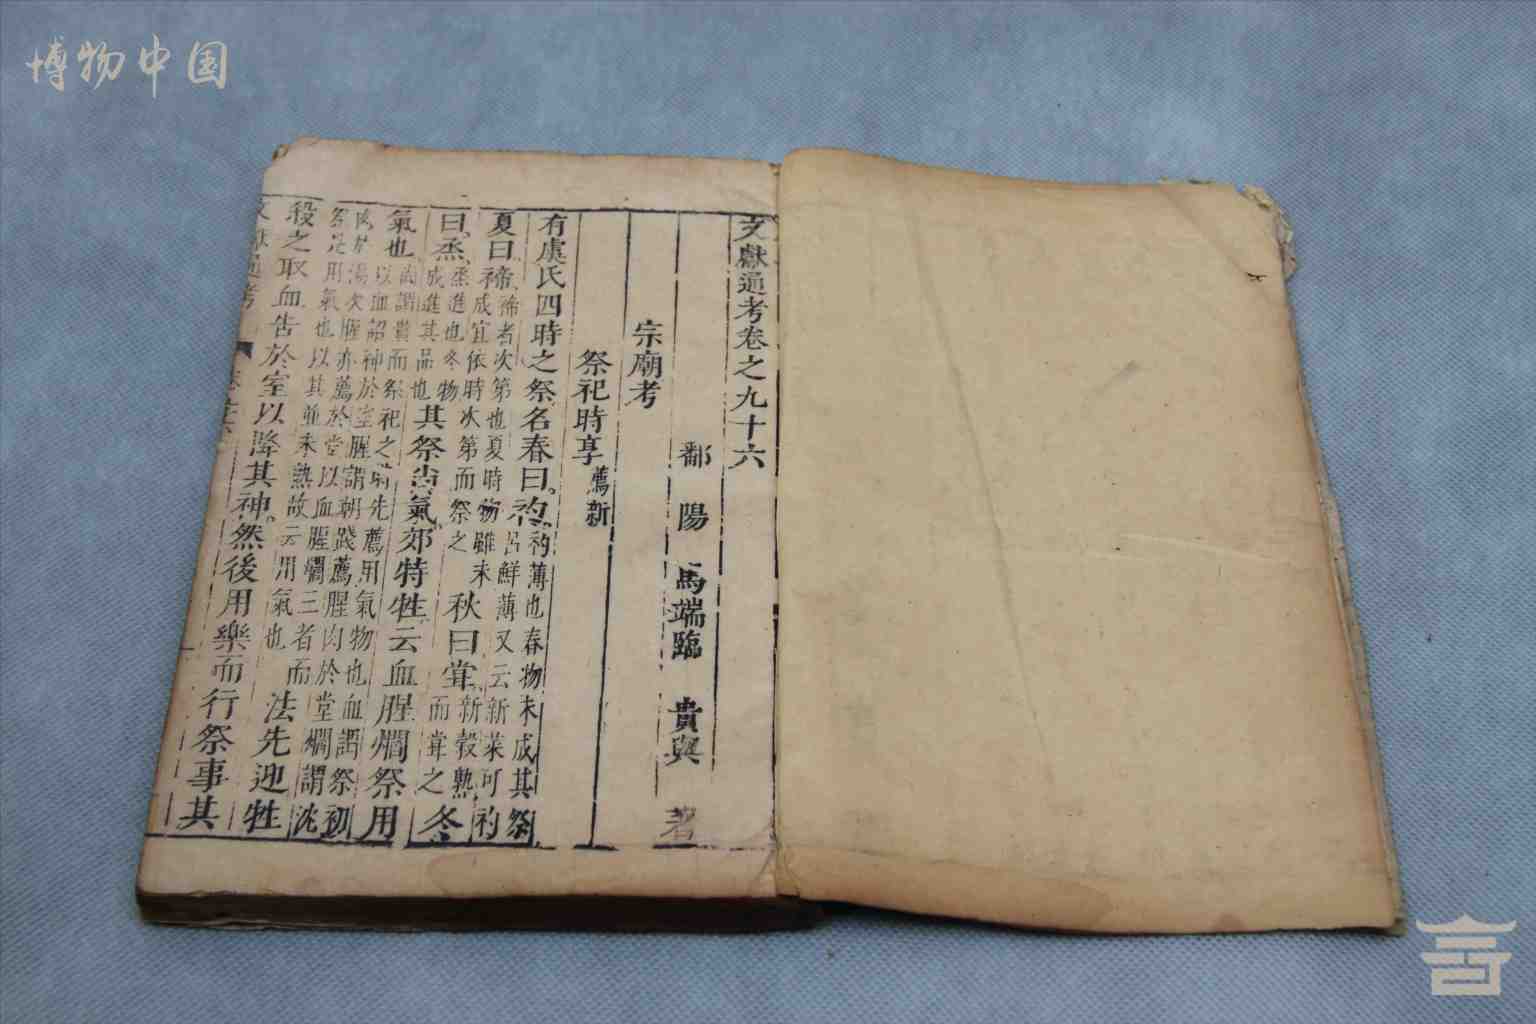 博物中国
文獻通考卷之九十六
鄱陽 馬端臨 貴與 著
宗廟考
祭祀時享 薦新
有虞氏四時之祭名春曰礿礿薄也春物未成其祭品鮮薄又云新菜可礿
夏曰禘禘者次第也夏時物雖未成宜依時次第而祭之秋曰甞新穀熟而甞之冬
曰烝烝進也冬物成進其品也其祭尚氣郊特牲云血腥爓祭用
氣也尚謂貴而祭祀之時先薦用氣物也血謂祭初以血詔神於室腥謂朝踐薦腥肉於堂爓謂沈
肉於湯次腥亦薦於堂以血腥爓三者而祭是用氣也以其並未熟故云用氣也法先迎牲
殺之取血告於室以降其神然後用樂而行祭事其
文獻通考